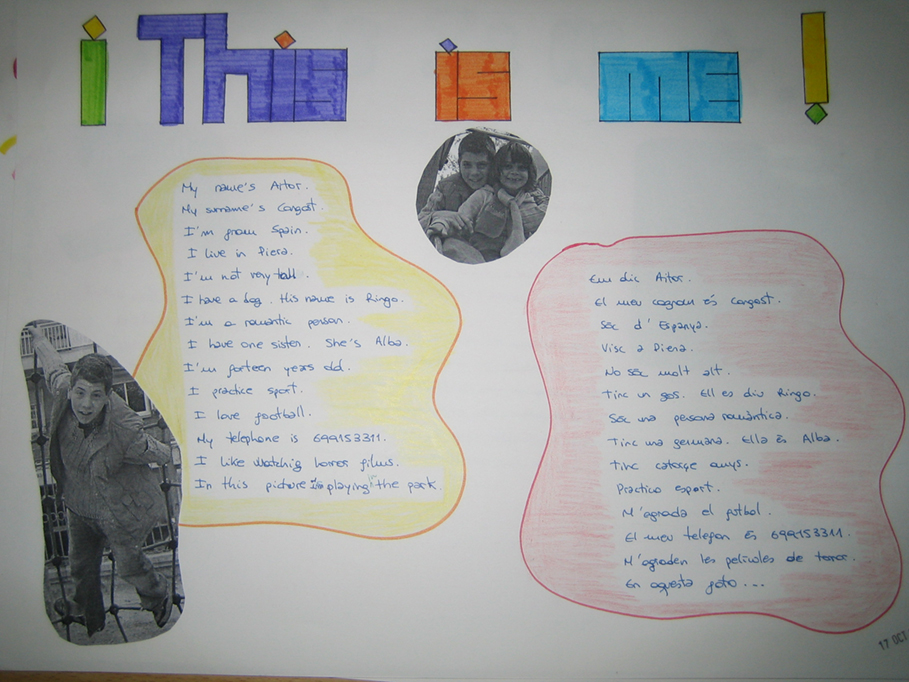 ¡This is me!
My name's Aitor.
My surname's Congost.
I'm from Spain.
I live in Piera.
I'm not very tall.
I have a dog. His name is Ringo.
I'm a romantic person.
I have one sister. She's Alba.
I'm forteen years old.
I practice sport.
I love football.
My telephone is 699153311.
I like watching horror films.
In this picture I'm playing in the park.
Em dic Aitor.
El meu cognom és Congost.
Sóc d'Espanya.
Visc a Piera.
No sóc molt alt.
Tinc un gos. Ell es diu Ringo.
Sóc una persona romàntica.
Tinc una germana. Ella és Alba.
Tinc catorçe anys.
Practico esport.
M'agrada el futbol.
El meu telefon és 699153311.
M'agraden les películes de terror.
En aquesta foto ...
17 OCT